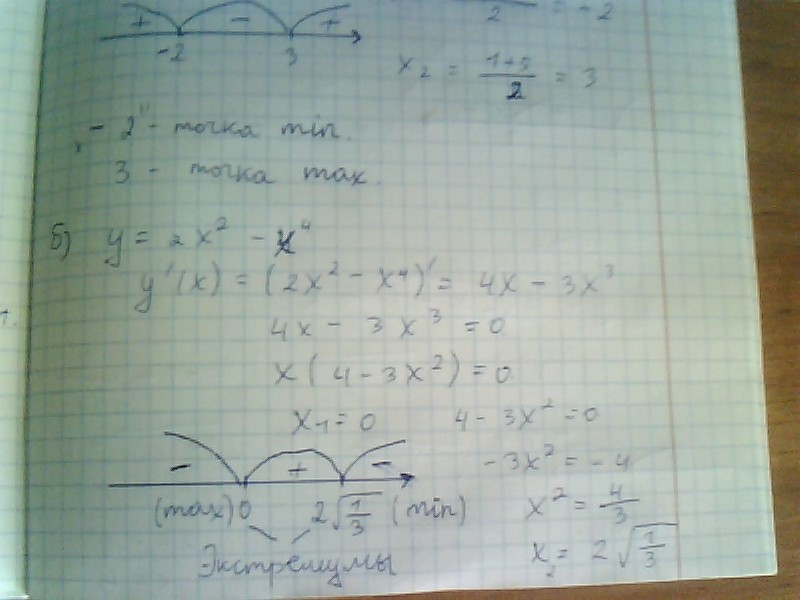 + - +
-2 3
2 = -2
x₂ = (1+5)/2 = 3
"-2" - точка min.
3 - точка max.
б) y = 2x² - x⁴
y'(x) = (2x² - x⁴)' = 4x - 3x³
4x - 3x³ = 0
x(4 - 3x²) = 0
x₁ = 0 4 - 3x² = 0
- + -
-3x² = -4
(max) 0 2√(1/3) (min)
x² = 4/3
Экстремумы
x₂ = 2√(1/3)